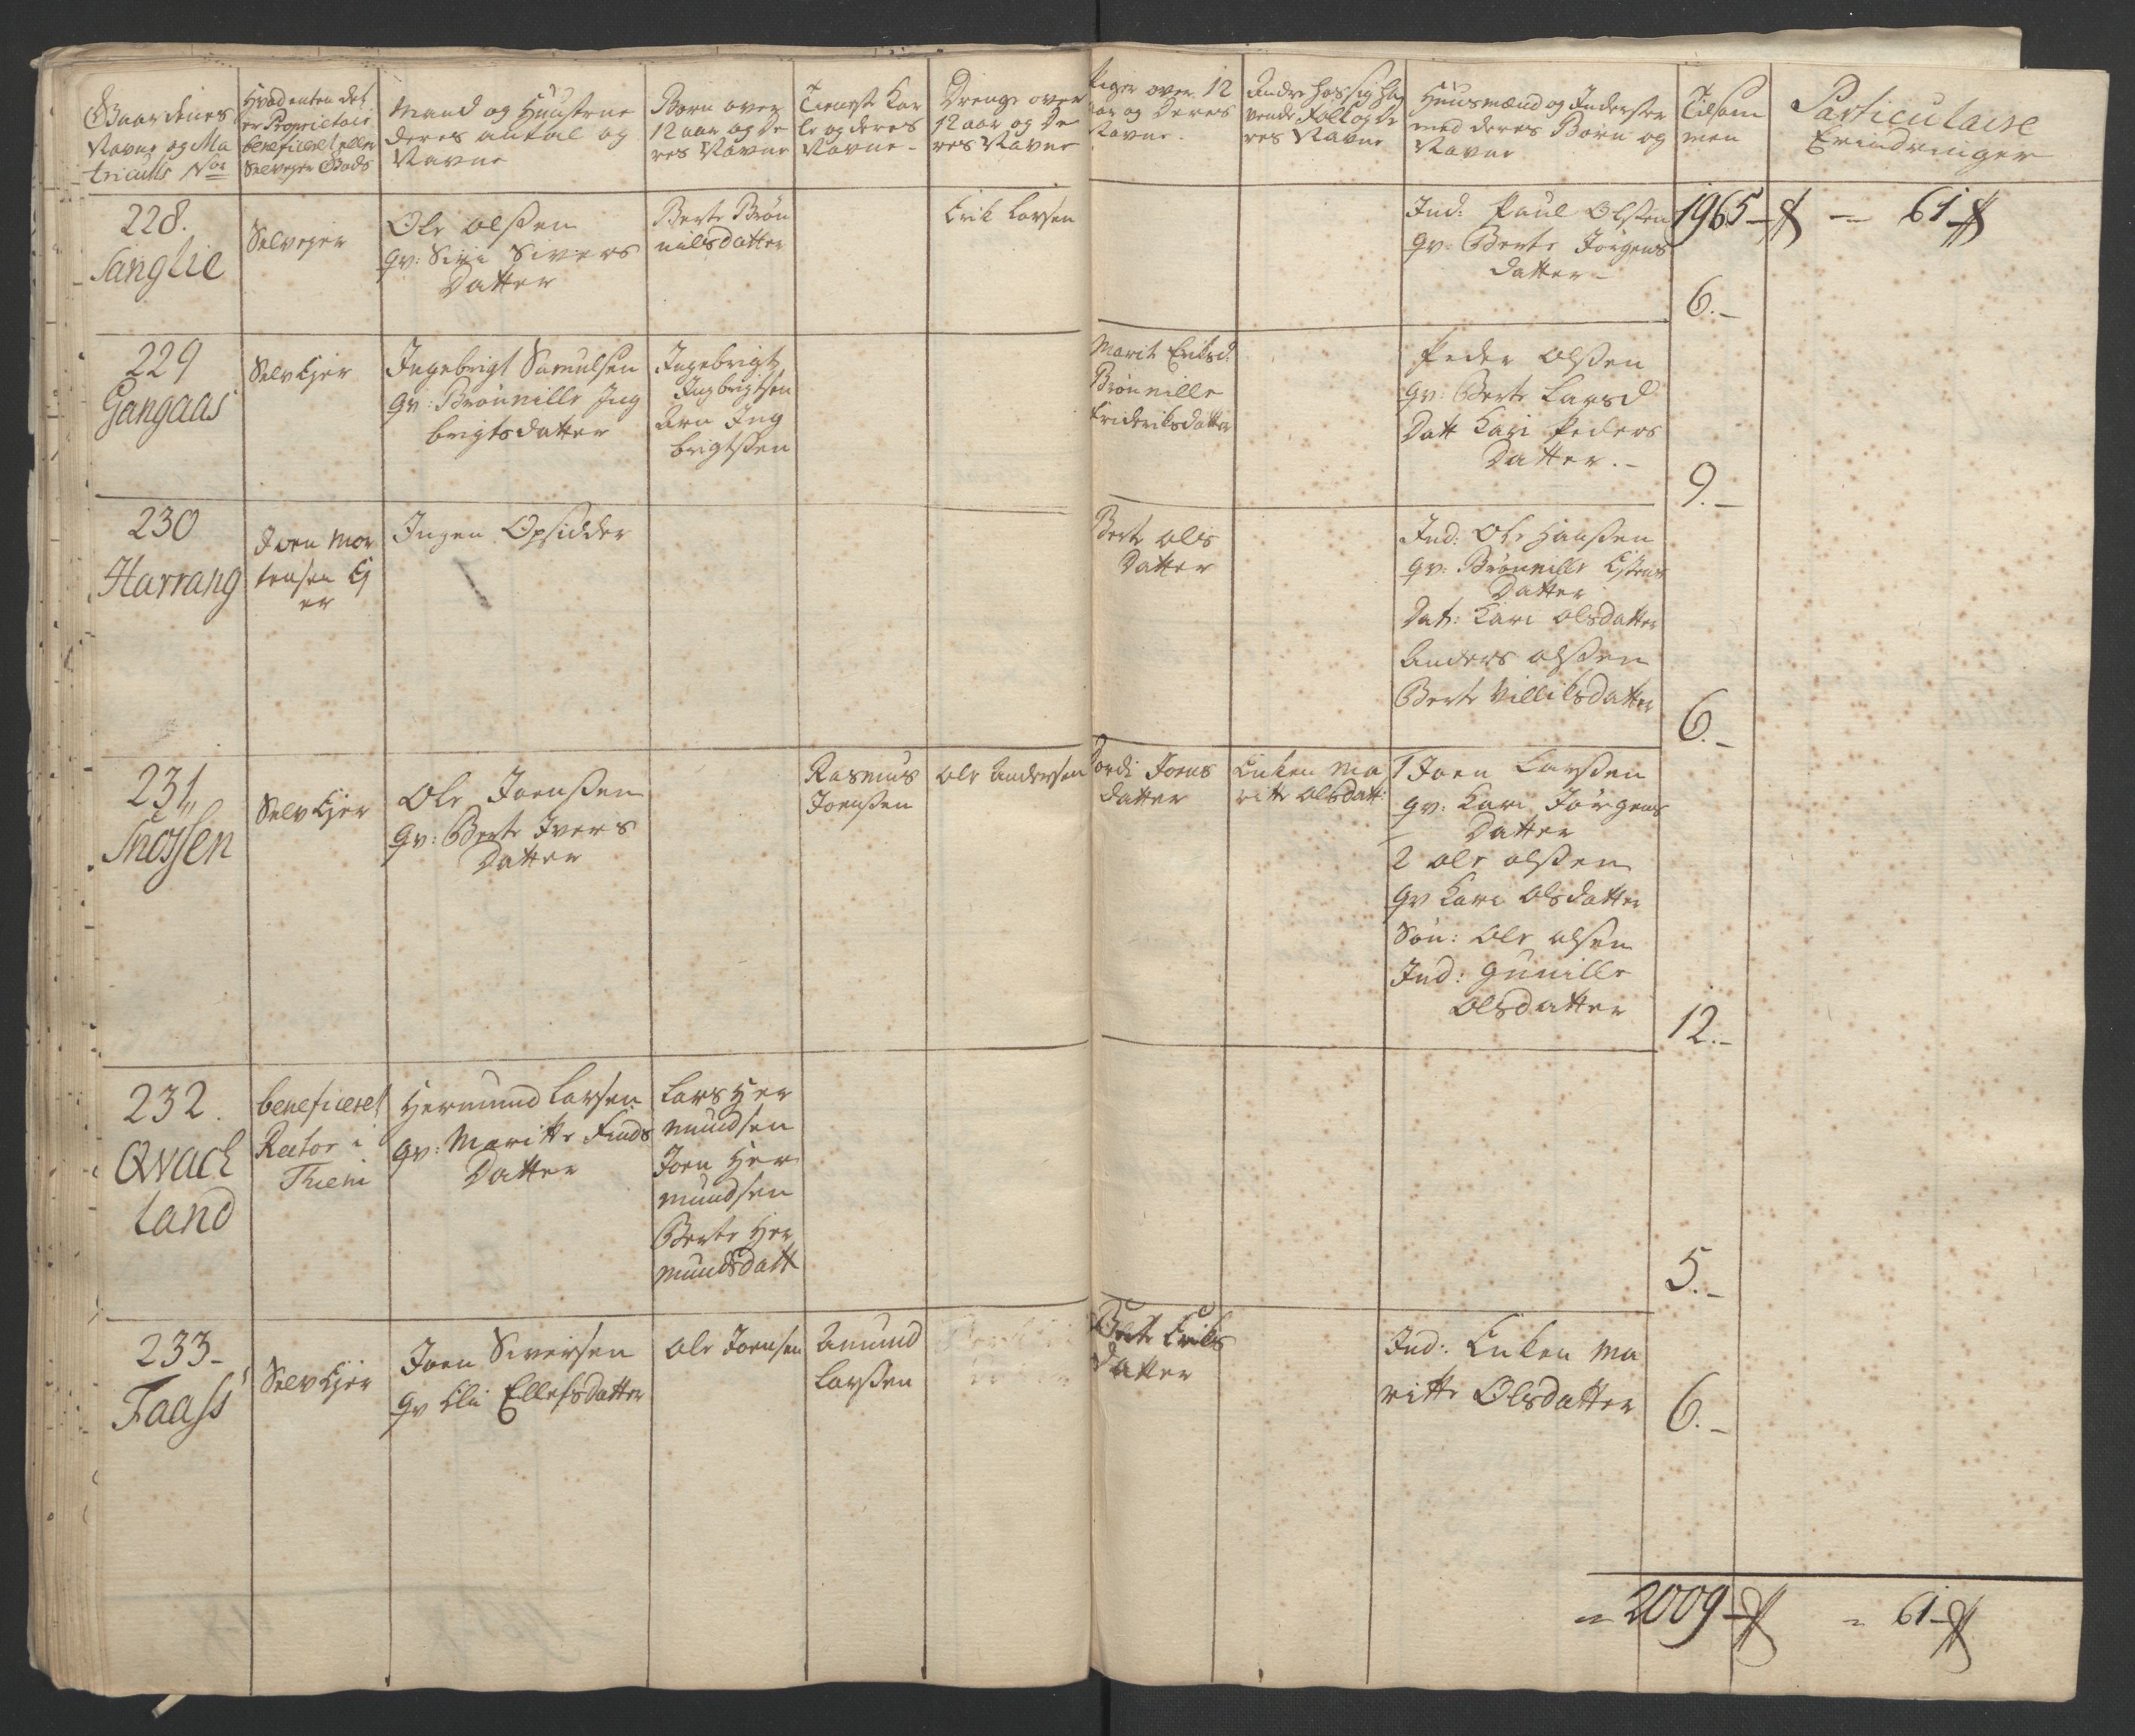 Gaardenes
Navne og Ma
triculs No:
Hvad enten det
er Proprietair
beneficeret eller
Selveyer Gods
Mand og Huustrue
deres antal og
Navne
Børn over
12 aar og De
res Navne
Tieneste Kar
le og deres
Navne -
Drenge over
12 aar og De
res Navne
Piger over 12
aar og Deres
Navne -
Andre hos sig ha
vende folk og De
res Navne
Huusmænd og Inderster
med deres Børn og
Navne
Tilsam
men
Particulaire
Erindringer
1965 — 61
228.
Langlie
Selveyer
Ole Olssen
Qv: Siri Sivers
Datter
Berte Brøn
nilsdatter
Erik Larsen
Ind: Paul Olssen
Qv: Berte Jørgens
datter -
6.-
229
Gangaas
Selv Ejer
Ingebrigt Samulsen
Qv: Brønnille Ing
brigtsdatter
Ingebrigt
Ingbrigtsen
Arn Ing
brigtssen
Marit Eriksd:
Brønnille
Frideriksdatter
Peder Olssen
Qv: Berte Larsd
Datt Kari Peders
Datter. -
9.-
230
Harrang
Joen Mor
tensen Ej
er
Ingen Opsidder
Berte Ols
Datter
Ind: Ole Hanssen
Qv: Brønnille
Datter
Dat: Kari Olsdatter
Anders Olssen
Berte Villilsdatter
6.-
231
Snossen
Selv Ejer
Ole Joenssen
Qv: Berte Ivers
Datter
Rasmus
Joenssen
Ole Andersen
Gordi Joens
datter
Enken Ma
ritte Olsdatt:
1 Joen Larssen
Qv: Kari Jørgens
Datter
2 Ole Olssen
Qv Kari Olsdatter
Søn: Ole Olsen
Ind: Gunille
Olsdatter
12.-
232.
Qvack
land
beneficeret
Rector i
Thiem
Hermund Larsen
Qv: Maritte Finds
Datter
Lars Her
mundsen
Joen Her
mundsen
Berte Her
mundsdatt
5.-
233-
Faass
Selv Ejer
Joen Siversen
Qv Eli Ellefsdatter
Ole Joensen
Amund
Larssen
Berte Eriks
datter
Ind: Enken Ma
ritte Olsdatter
6.-
2009 - 61